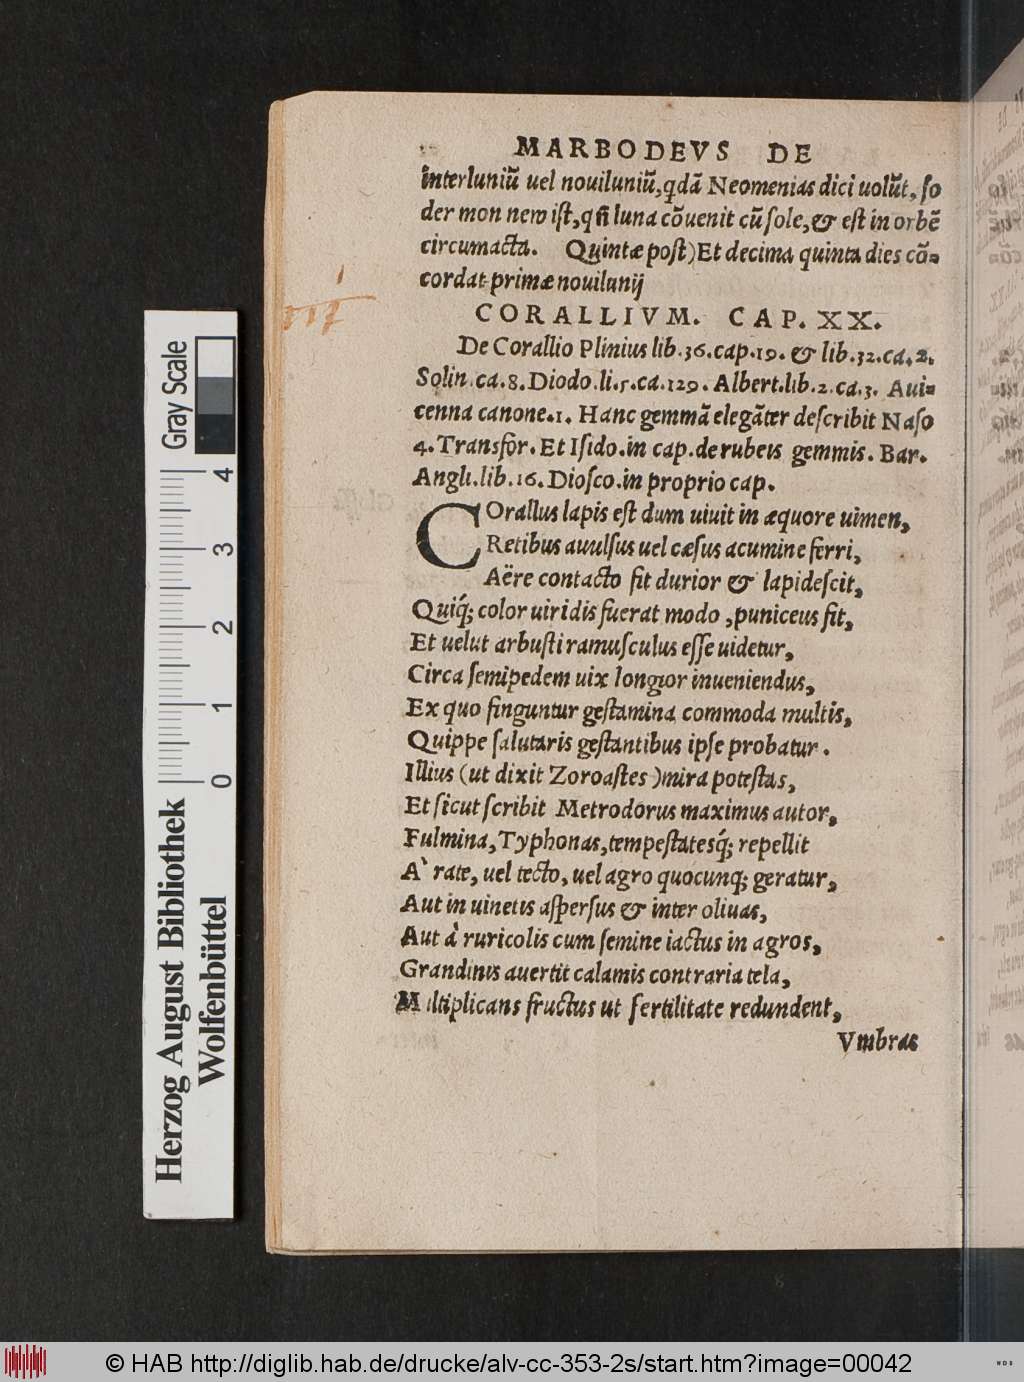 MARBODEVS DE
interluniũ uel nouiluniũ, qdã Neomenias dici uolũt, so
der mon new ist, q ñ luna cõuenit cũ sole, & est in orbẽ
circumacta. Quintæ post) Et decima quinta dies cõ=
cordat primæ nouilunij
CORALLIVM. CAP. XX.
De Corallio Plinius lib. 36. cap. 19. & lib. 32. ca. 2.
Solin. ca. 8. Diodo. li. 5. ca. 129. Albert. lib. 2. ca. 3. Aui=
cenna canone. 1. Hanc gemmã elegãter describit Naso
4. Transfor. Et Isido. in cap. de rubeis gemmis. Bar.
Angli. lib. 16. Diosco. in proprio cap.
COrallus lapis est dum uiuit in æquore uimen,
Retibus auulsus uel cæsus acumine ferri,
Aëre contacto fit durior & lapidescit,
Quiq́; color uiridis fuerat modo, puniceus fit,
Et uelut arbusti ramusculus esse uidetur,
Circa semipedem uix longior inueniendus,
Ex quo finguntur gestamina commoda multis,
Quippe salutaris gestantibus ipse probatur.
Illius (ut dixit Zoroastes) mira potestas,
Et sicut scribit Metrodorus maximus autor,
Fulmina, Typhonas, tempestatesq́; repellit
A` rate, uel tecto, uel agro quocunq; geratur,
Aut in uinetis aspersus & inter oliuas,
Aut à ruricolis cum semine iactus in agros,
Grandinis auertit calamis contraria tela,
Multiplicans fructus ut fertilitate redundent,
Vmbras
Gray Scale
4
3
2
1
0
Herzog August Bibliothek
Wolfenbüttel
© HAB http://diglib.hab.de/drucke/alv-cc-353-2s/start.htm?image=00042